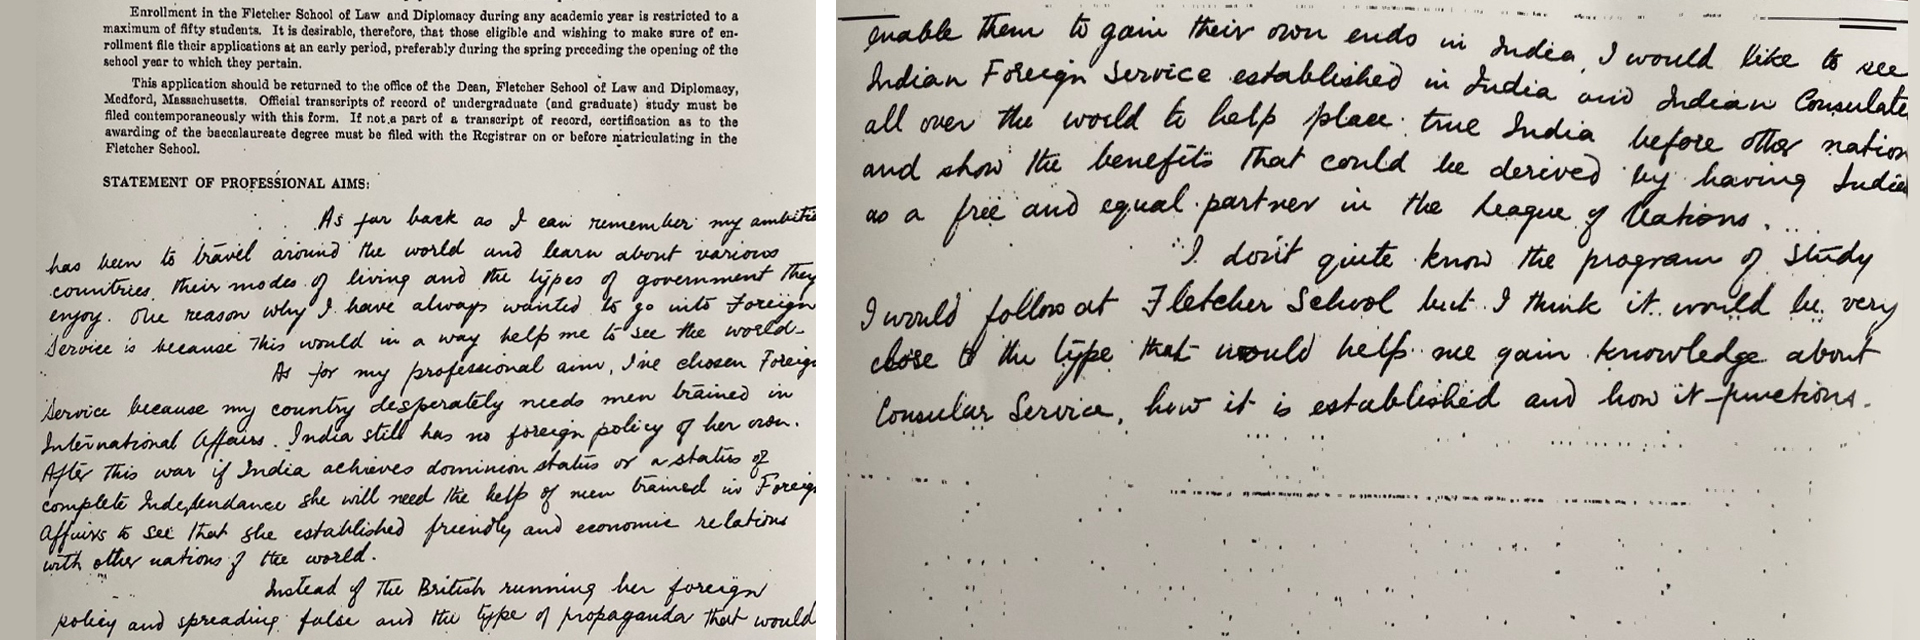 Enrollment in the Fletcher School of Law and Diplomacy during any academic year is restricted to a
maximum of fifty students. It is desirable, therefore, that those eligible and wishing to make sure of en-
rollment file their applications at an early period, preferably during the spring preceding the opening of the
school year to which they pertain.
This application should be returned to the office of the Dean, Fletcher School of Law and Diplomacy,
Medford, Massachusetts. Official transcripts of record of undergraduate (and graduate) study must be
filed contemporaneously with this form. If not a part of a transcript of record, certification as to the
awarding of the baccalaureate degree must be filed with the Registrar on or before matriculating in the
Fletcher School.
STATEMENT OF PROFESSIONAL AIMS:
As far back as I can remember my ambitio
has been to travel around the world and learn about various
countries, their modes of living and the types of government they
enjoy. One reason why I have always wanted to go into Foreign
Service is because this would in a way help me to see the world.
As for my professional aim, I've chosen Foreign
Service because my country desperately needs men trained in
International Affairs. India still has no foreign policy of her own.
After this war if India achieves dominion status or a status of
complete Independance she will need the help of men trained in Foreign
Affairs to see that she established friendly and economic relations
with other nations of the world.
Instead of the British running her foreign
policy and spreading false and the type of propaganda that would
enable them to gain their own ends in India, I would like to see
Indian Foreign Service established in India and Indian Consulate
all over the world to help place true India before other nation
and show the benefits that could be derived by having India
as a free and equal partner in the League of Nations.
I don't quite know the program of Study
I would follow at Fletcher School but I think it would be very
close to the type that would help me gain knowledge about
Consular Service, how it is established and how it functions.